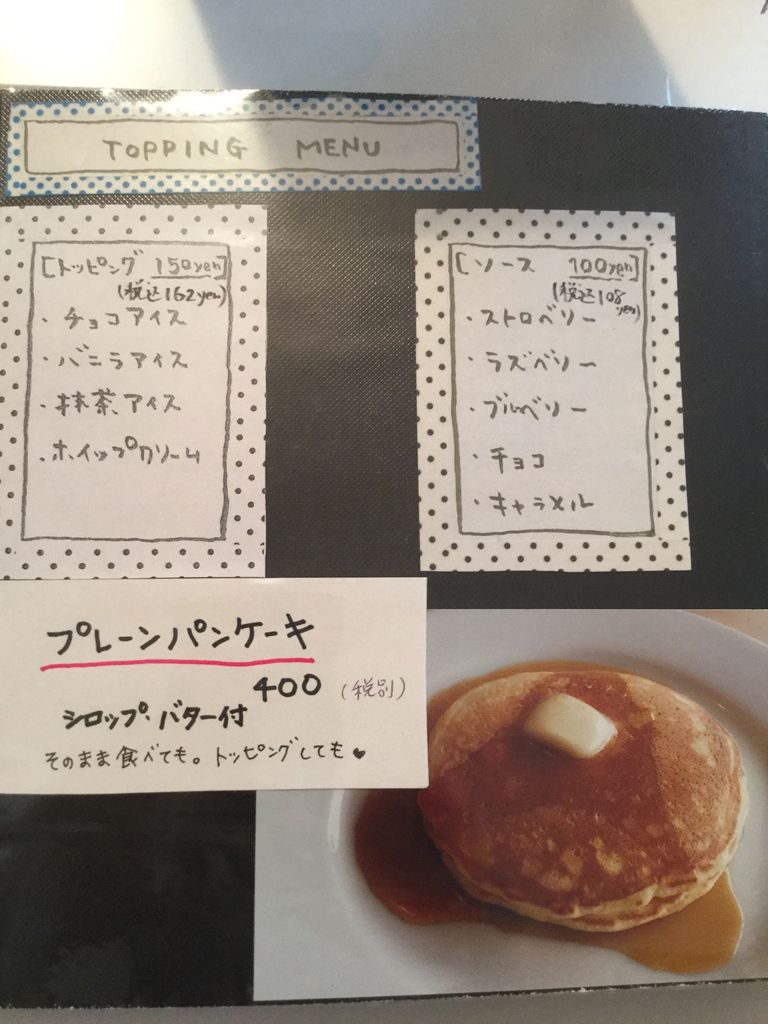 TOPPING MENU
[トッピング 150yen]
(税込162yen)
・チョコアイス
・バニラアイス
・抹茶アイス
・ホイップクリーム
[ソース 100yen]
(税込108yen)
・ストロベリー
・ラズベリー
・ブルーベリー
・チョコ
・キャラメル
プレーンパンケーキ
400 (税別)
シロップ・バター付
そのまま食べても。トッピングしても♥